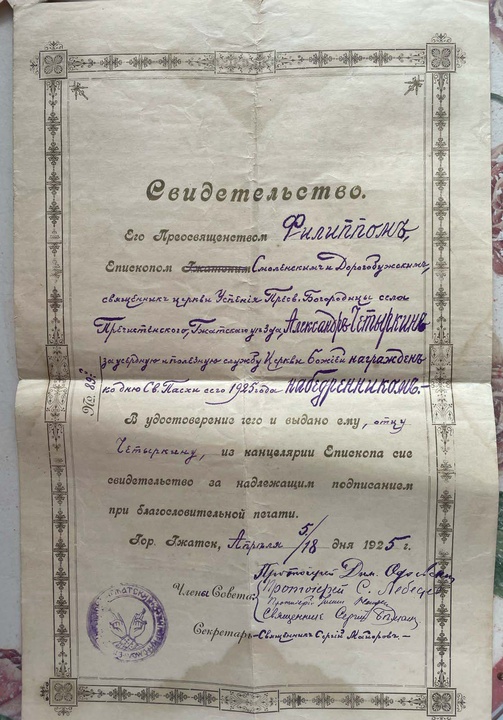 Свидетельство.
Его Преосвященством Филиппомъ,
Епископом Гжатским Смоленскимъ и Дорогобужскимъ,
священникъ церквы Успенія Пресв. Богородицы села
Пречистенскаго, Гжатскаго уѣзда, Александръ Четыркинъ
за усердную и полезную службу Церкви Божіей награжденъ
ко дню Св. Пасхи сего 1925 года набедренникомъ.–
№ 89.
В удостоверение чего и выдано ему, отцу
Четыркину, из канцелярии Епископа сие
свидетельство за надлежащим подписанием
при благословительной печати.
Гор. Гжатск, Апрѣля 5/18 дня 1925 г.
Протоіерей Дим.
Члены Совета: Протоіерей С. Лебедев
Протоіерей
Священник Сергій
Секретарь – Священникъ Сергій